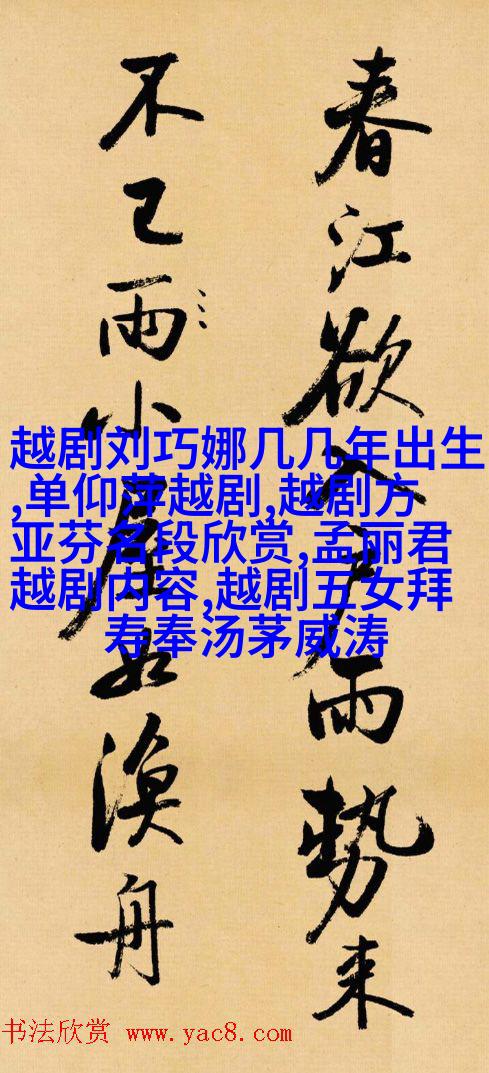 春江欲入户雨勢来
不已雨小屋如漁舟
越剧刘巧娜几几年出生
,单仰萍越剧,越剧方
亚芬名段欣赏,孟丽君
越剧内容,越剧五女拜
寿奉汤茅威涛
书法欣赏 www.yac8.com